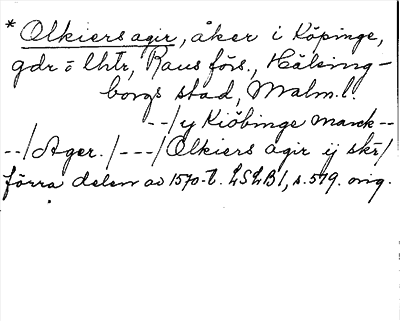 * Olkiers agir, åker i Köpinge,
gdr o lhtr, Raus förs., Hälsing-
borgs stad, Malm. l.
--/ y Kiöbinge marck --
--/ Ager. /---/ Olkiers agir ij skr/
förra delen av 1570-t. LSLB 1, s. 579. orig.